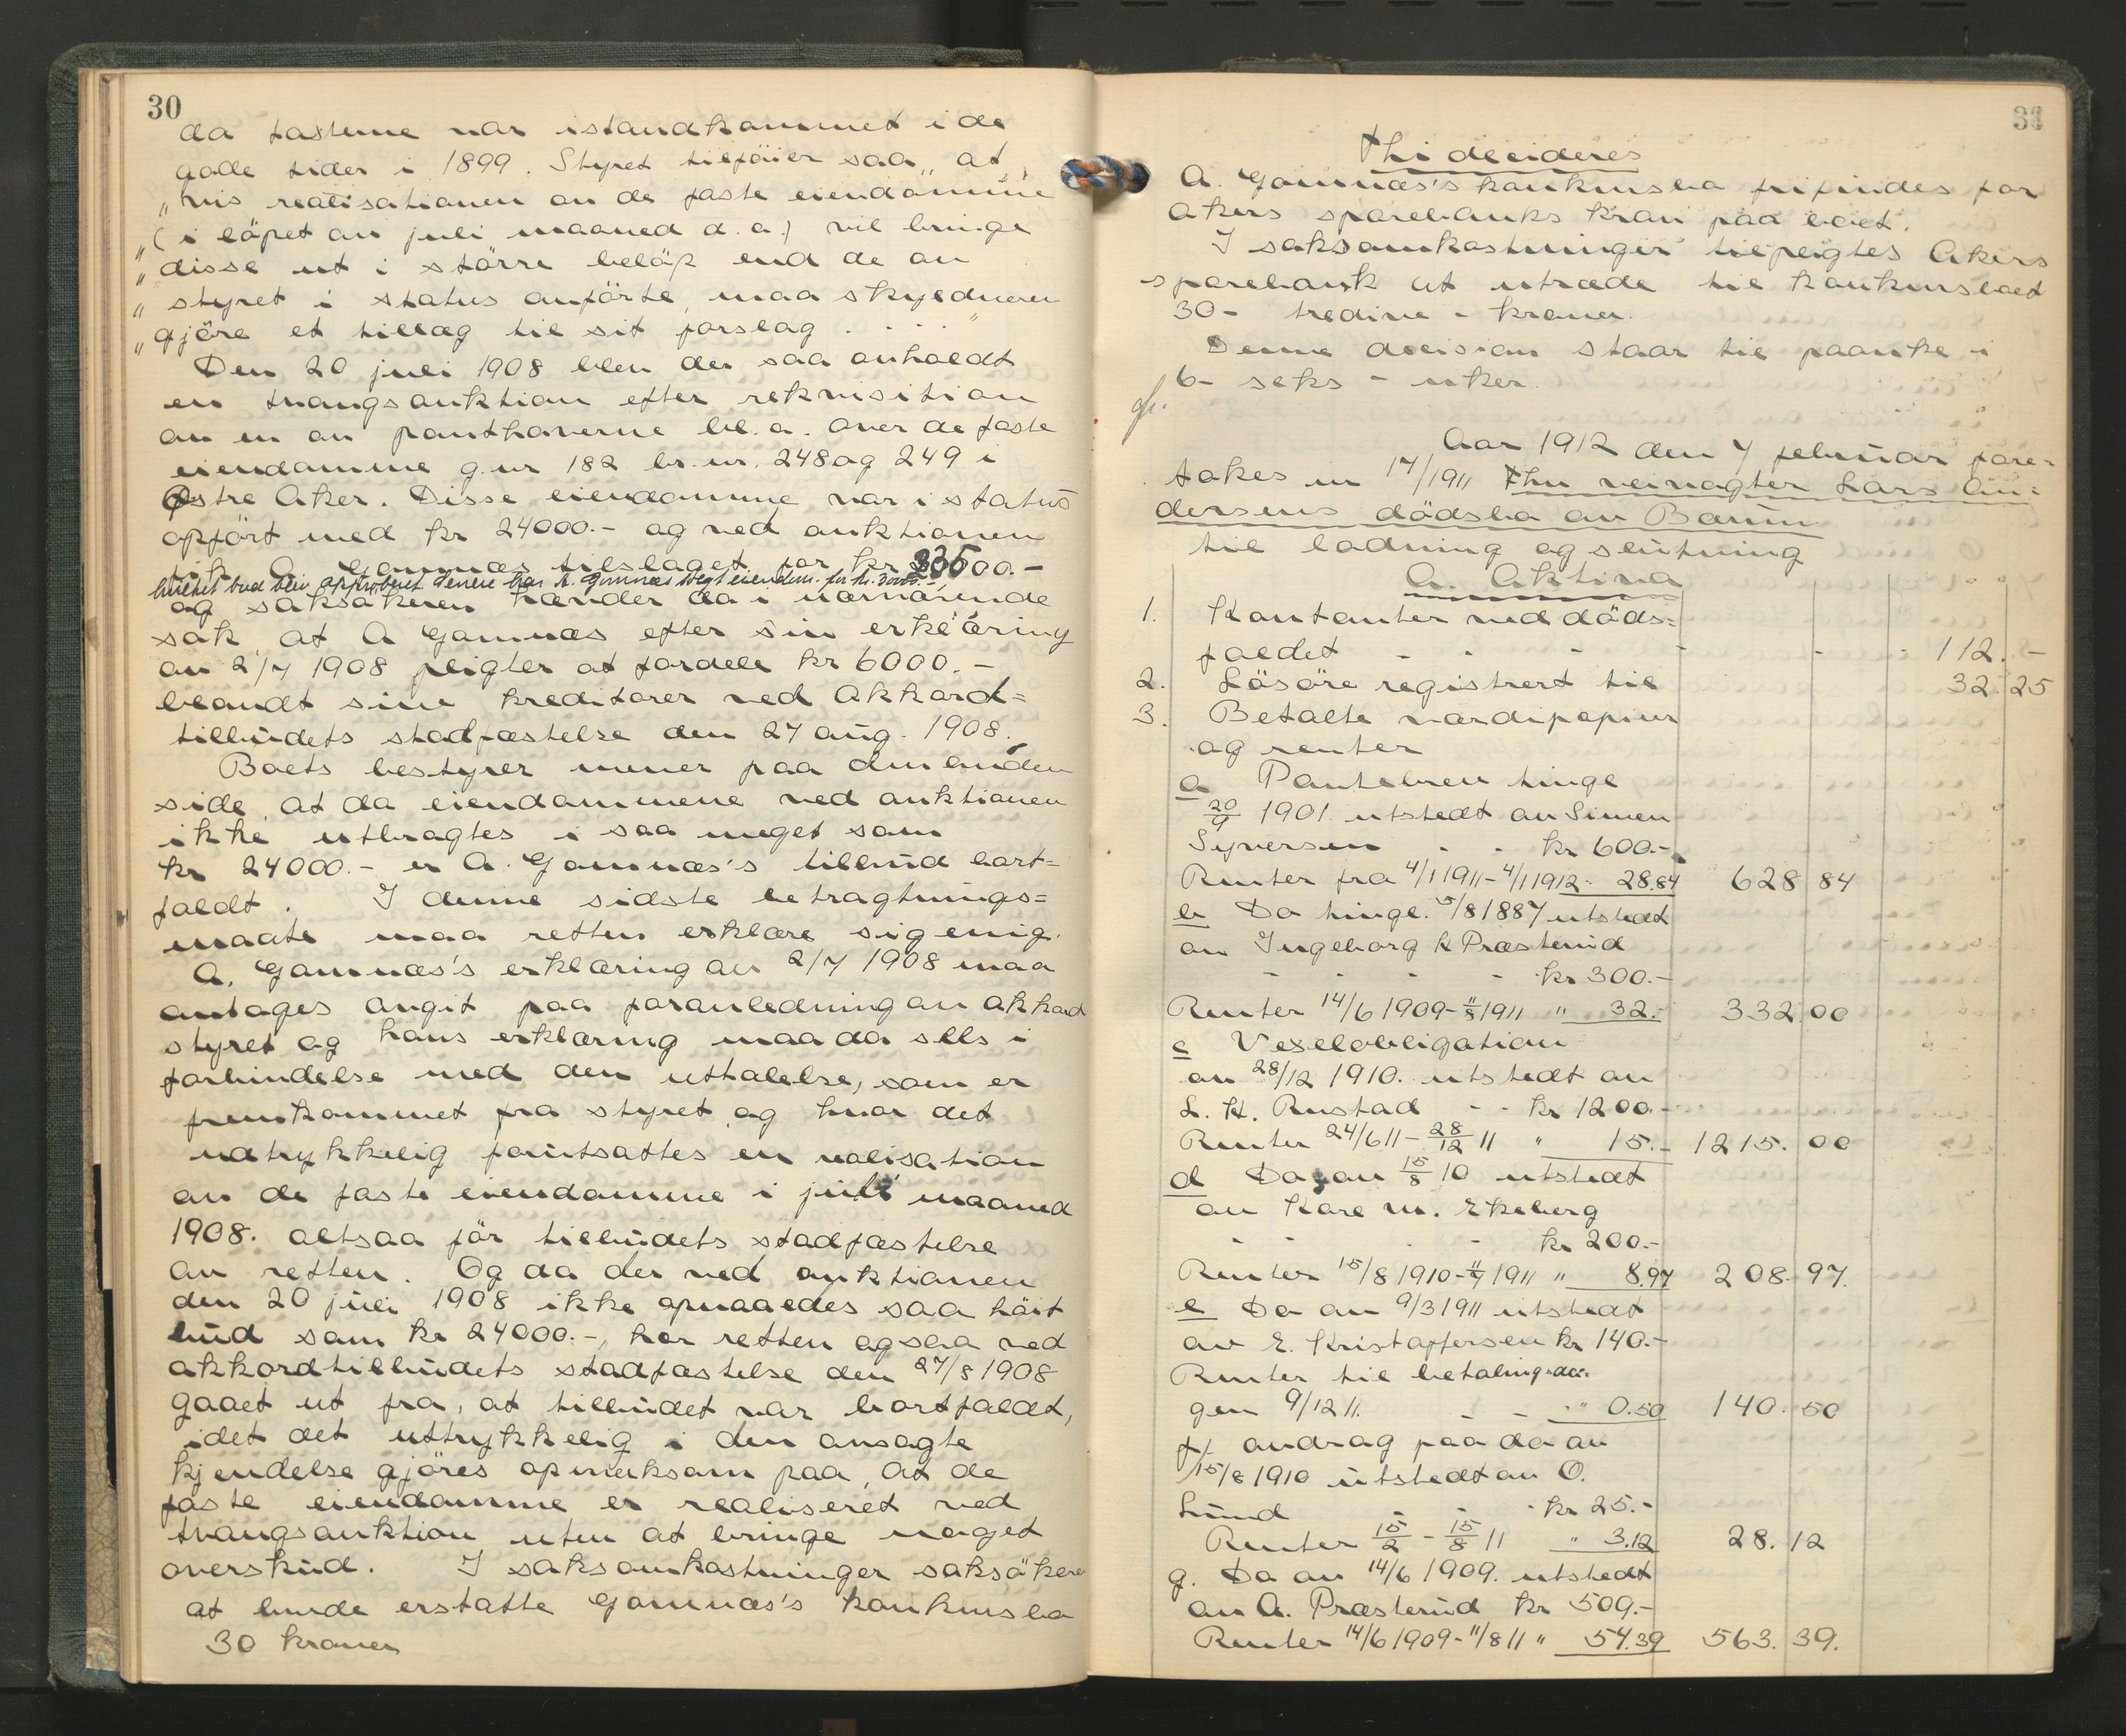 30
da tasterne var istandkommet i de
gode tider i 1899. Styret tilföier saa, "at
"hvis realisationen av de faste eiendomme
"(i löpet av juli maaned d. a.) vil bringe
"disse ut i större belöp end de av
"styret i status anförte, maa skyldneren
"gjöre et tillæg til sit forslag . . . "
Den 20 juli 1908 blev der saa avholdt
en tvangsauktion efter rekvisition
av en av panthaverne bl. a. over de faste
eiendomme g.nr 182 br.nr. 248 og 249 i
Østre Aker. Disse eiendomme var i status
opført med kr 24000.- og ved auktionen
fik A. Gomnæs tilslaget for kr 23500.-
hvilket bud blev approberet. Senere har A. Gomnæs solgt eiendom. for kr. 3000.-
og saksökeren hævder da i nærværende
sak, at A Gomnæs efter sin erklæring
av 2/7 1908 pligter at fordele kr 6000.-
blandt sine kreditorer ved akkord=
tilbudets stadfæstelse den 27 aug. 1908.
Boets bestyrer mener paa den anden
side, at da eiendommene ved auktionen
ikke utbragtes i saa meget som
kr 24000.- er A. Gomnæs's tilbud bort=
faldt. I denne sidste betragtnings=
maate maa retten erklære sig enig.
A. Gomnæs's erklæring av 2/7 1908 maa
antages avgit paa foranledning av akkord
styret og hans erklæring maa da sees i
forbindelse med den uttalelse, som er
fremkommet fra styret og hvor det
udtrykkelig forutsattes en realisation
av de faste eiendomme i juli maaned
1908. altsaa för tilbudets stadfæstelse
av retten. Og da der ved auktionen
den 20 juli 1908 ikke opnaaedes saa höit
bud som kr 24000.-, har retten ogsaa ved
akkordtilbudets stadfæstelse den 27/8 1908
gaaet ut fra, at tilbudet var bortfaldt,
idet det uttrykkelig i den avsagte
kjendelse gjöres opmerksom paa, at de
faste eiendomme er realiseret ved
tvangsauktion uten at bringe noget
overskud. I saksomkostninger saksökeren
at burde erstatte Gomnæs's konkursbo
30 kroner
31
Thi decideres
A. Gomnæs's konkursbo frifindes for
Akers sparebanks krav paa boet.
I saksomkostninger tilpligtes Akers
sparebank at utrede til konkursboet
30- tredive - kroner.
Denne decision staar til paanke i
6- seks - uker.
Aar 1912 den 7 februar fore=
takes in 17/1911 Fhv veivogter Lars An=
dersens dödsbo av Bærum
til lodning og slutning
A. Aktiva
1. Kontanter ved döds=
faldet - - - - - - 112. -
2. Lösöre registrert til 32. 25
3. Betalte værdipapirer
og renter
a Pantebrev tingl
20/9 1901. utstedt av Simen
Syversen - - kr 600.-
Renter fra 4/1 1911-4/1 1912- 28.84 628 84
b Do tingl. 5/8 1887 utstedt
av Ingeborg K Præsterud
- - - - kr 300.-
Renter 14/6 1909-11/8 1911 " 32.- 332 00
c Vexelobligation
av 28/12 1910. utstedt av
L. H. Rustad - - kr 1200.-
Renter 24/6 11-28/12 11 " 15.- 1215. 00
d Do av 15/8 10 utstedt
av Kare M. Ekeberg
- - - - kr 200.-
Renter 15/8 1910-11/7 1911 " 8.97 208. 97.
e Do av 9/3 1911 utstedt
av E. Kristoffersen kr 140.-
Renter til betalingsda=
gen 9/12 11. - - " 0.50 140. 50
f/ avdrag paa do av
15/8 1910 utstedt av O.
Lund - - kr 25.-
Renter 15/2 - 15/8 11 " 3.12 28. 12
g. Do av 14/6 1909. utstedt
av A. Præsterud kr 509.-
Renter 14/6 1909-11/8 11 " 54.39 563. 39.